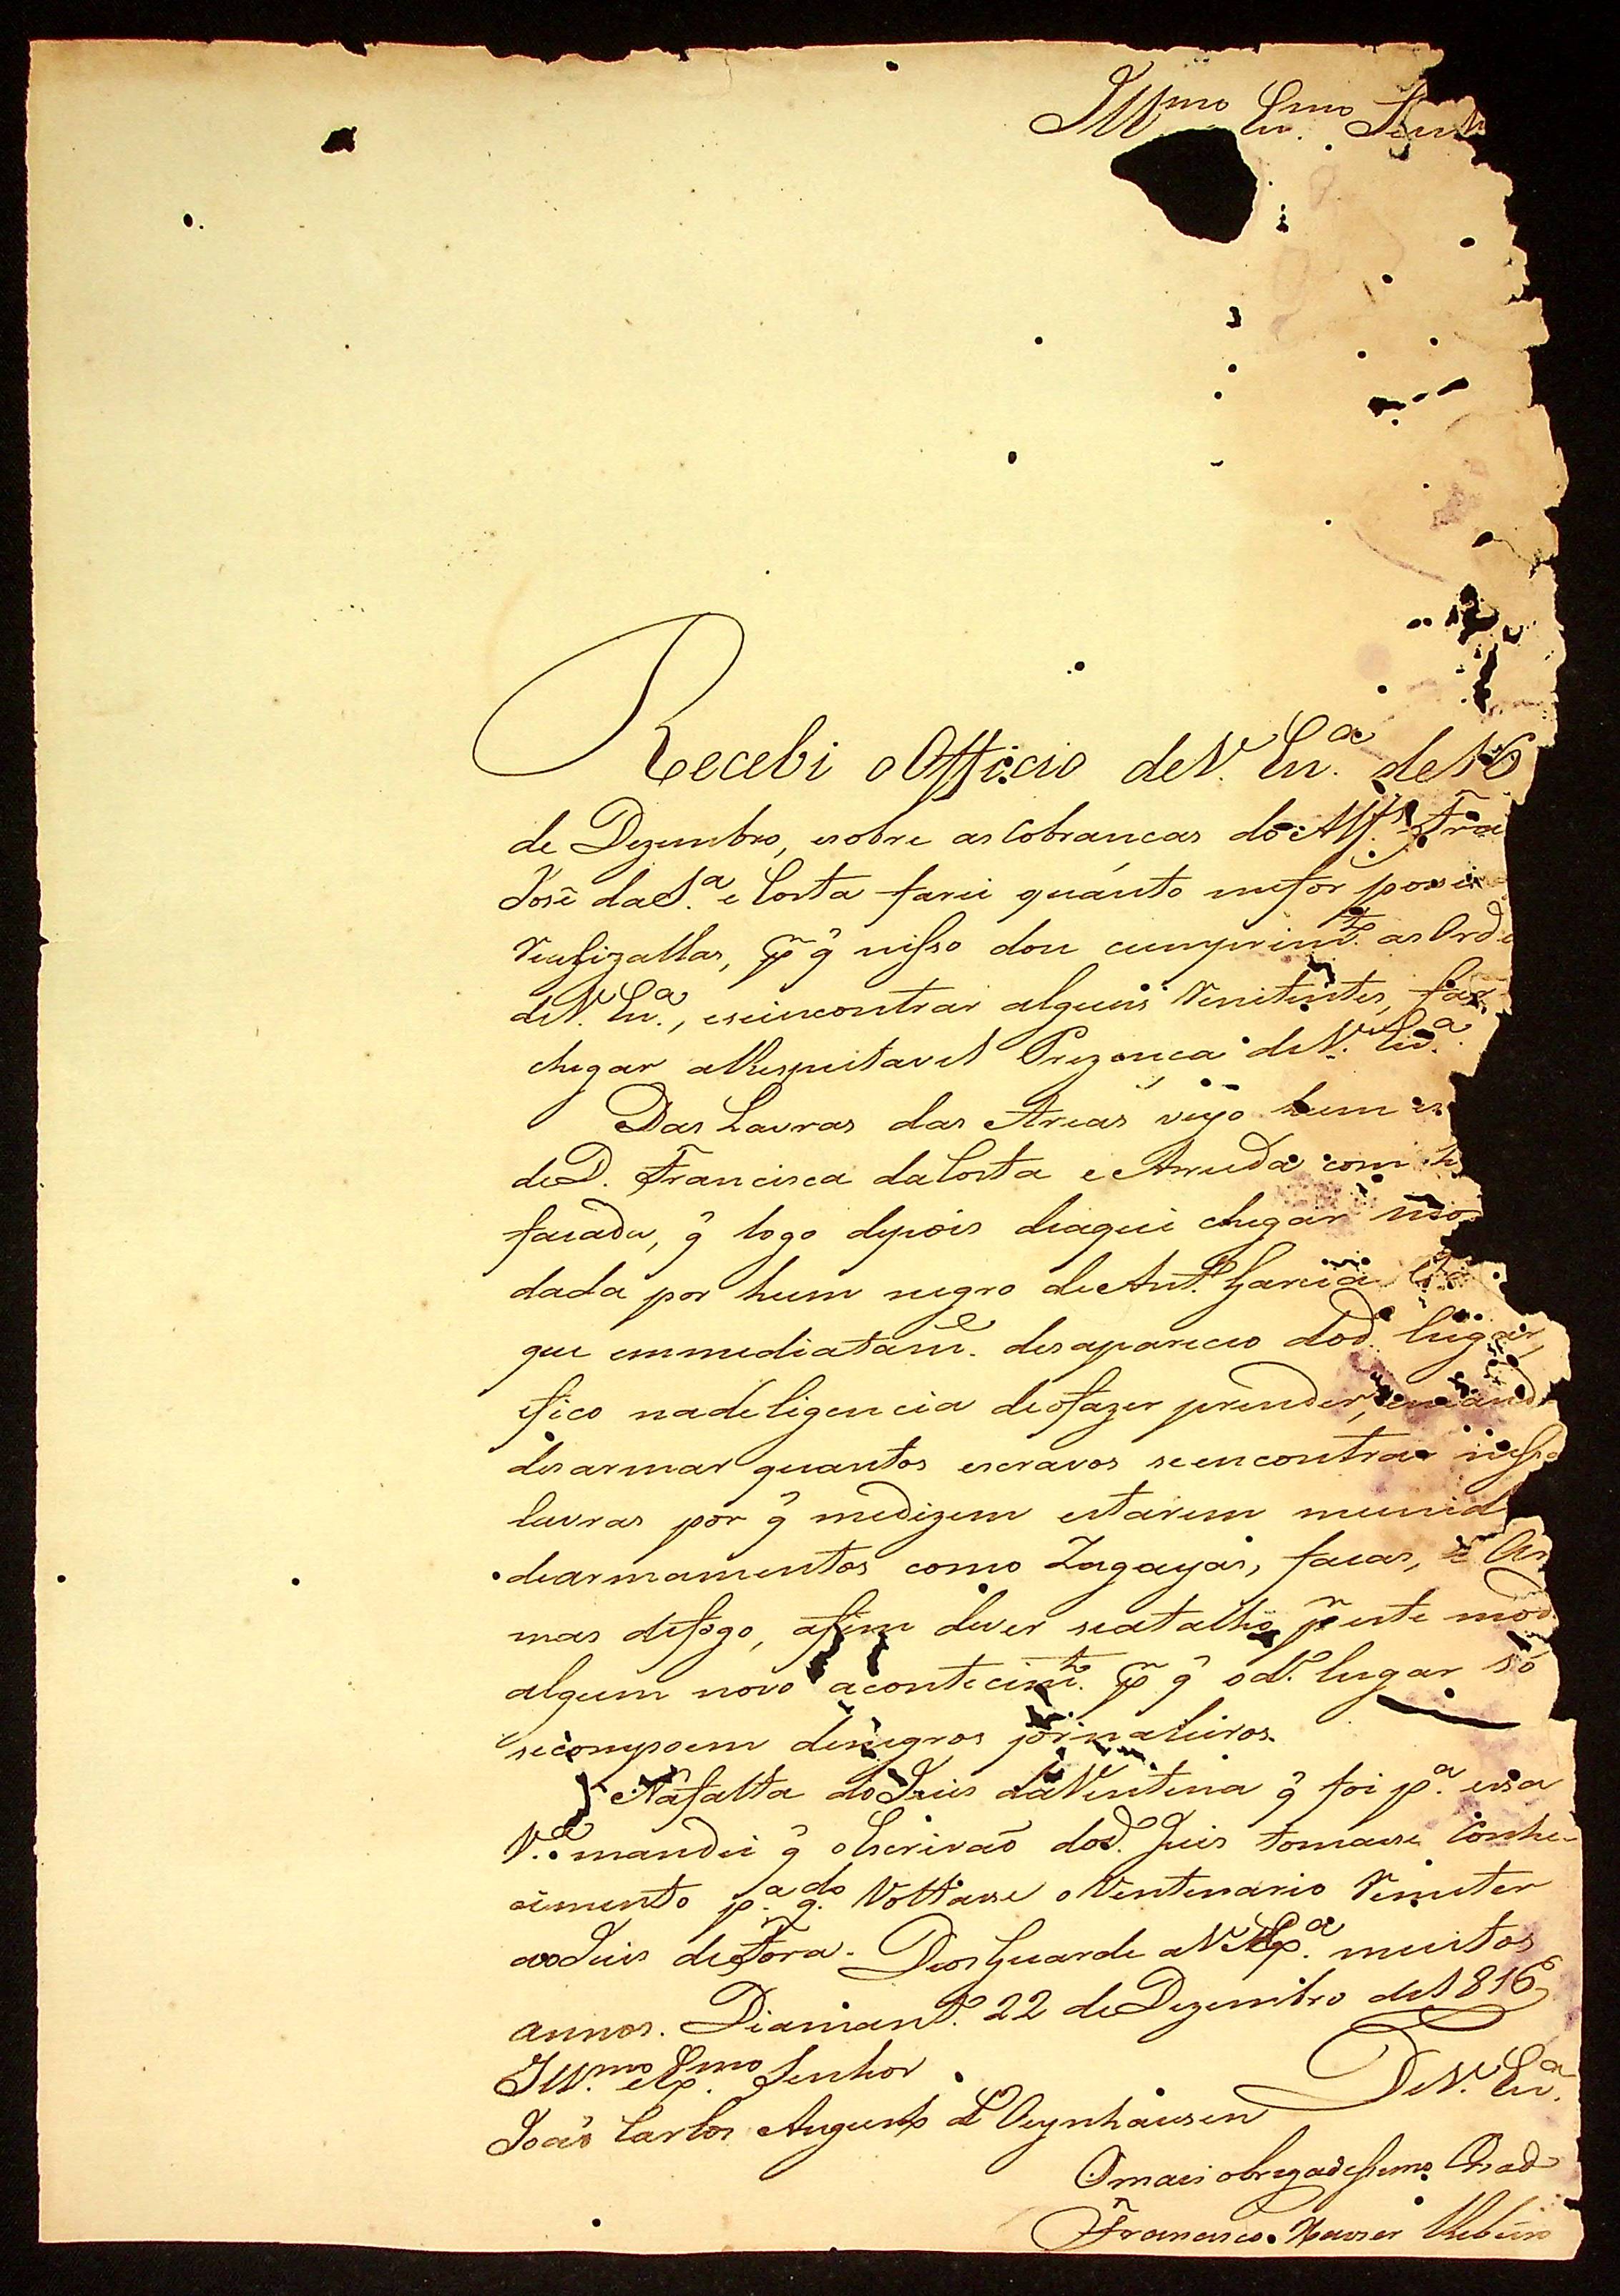 Ill.mo Ex.mo Senh
Recebi o Officio de V. Ex.a de 16
de Dezembro, e sobre as Cobrancas do Alf.s Fra
José da S.a e Costa farei quanto me for possi
realizallas, p q̃ nisso dou cumprim.to as Orde
de V. Ex.a, e se incontrar alguns renitentes, faz
chegar a Respeitavel Prezença de V. Ex.a
Das Lavras das Areas veyo hum es
de D. Francisca da Costa e Arruda com h
facada, q̃ logo depois de aqui chegar mor
dada por hum negro de Ant.o Garcia
que emmediatam.e desapareceo do d.o lugar,
e fico na deligencia de o fazer prender, e mand
desarmar quantos escravos se encontrar nessa
lavras por q̃ me dizem estarem munid
de armamentos como Zagayas, facas, e Ar
mas de fogo, afim de ver se atalho p este mod
algum novo acontecim.to p q̃ o d.o lugar só
se compoem de negros jornaleiros.
Na falta do Juis da Ventena q̃ foi p.a essa
V.a mandei q̃ o Escrivaõ do d.o Juis tomasse Conhe-
cimento p.a q.do voltasse o Ventenario remeter
ao Juis de Fora. Deos Guarde a V. Exp.a muitos
annos. Diamant.o 22 de Dezembro de 1816
Ill.mo e Exp.mo Senhor
De V. Ex.a
Joaõ Carlos Augusto d'Oeynhausen
O mais obrigadessimo Criad
Francisco Xavier Ribeiro